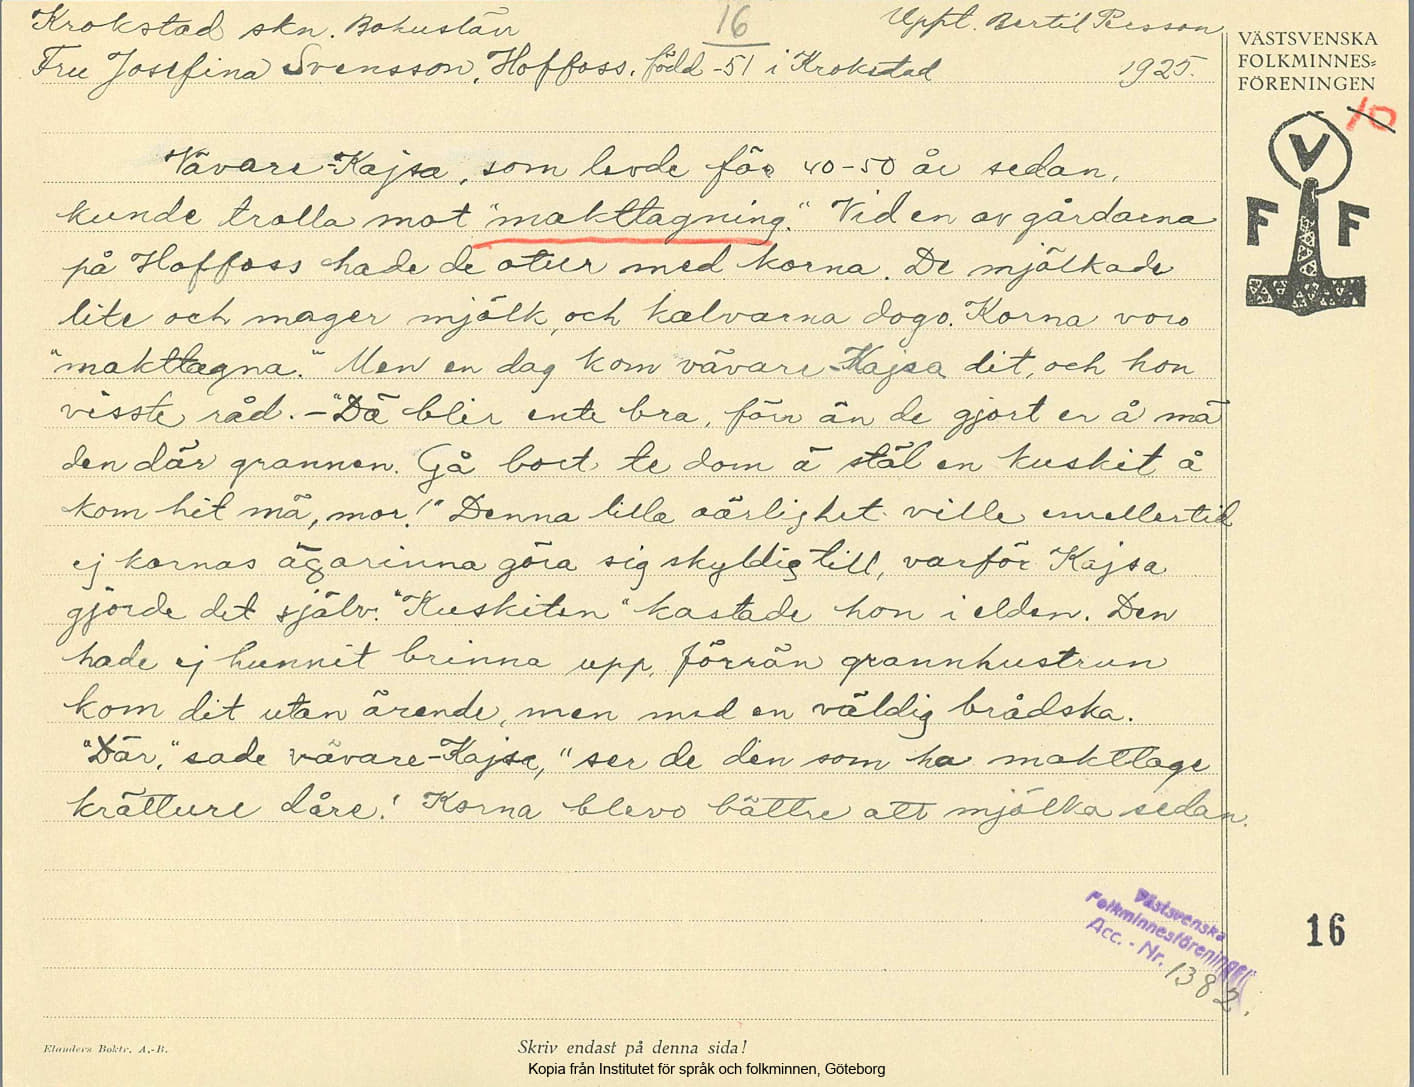 Krokstad skn. Bohuslän
16
Uppt. Bertil Persson
Fru Josefina Svensson, Hoffoss. född -51 i Krokstad
1925.
VÄSTSVENSKA
FOLKMINNES=
FÖRENINGEN
10
V
F F
Vävare-Kajsa, som levde för 40-50 år sedan,
kunde trolla mot "makttagning." Vid en av gårdarna
på Hoffoss hade de otur med korna. De mjölkade
lite och mager mjölk, och kalvarna dogo. Korna voro
"makttagna." Men en dag kom vävare-Kajsa dit, och hon
visste råd. - "Dä blir ente bra, förr än de gjort er å mä
den där grannen. Gå bort te dom å stäl en kuskit å
kom hit mä, mor!" Denna lilla oärlighet ville emellertid
ej kornas ägarinna göra sig skyldig till, varför Kajsa
gjorde det själv. "Kuskiten" kastade hon i elden. Den
hade ej hunnit brinna upp, förrän grannhustrun
kom dit utan ärende, men med en väldig brådska.
"Där," sade vävare-Kajsa, "ser de den som ha makttage
krätture dåre! Korna blevo bättre att mjölka sedan.
Västsvenska
Folkminnesföreningen
Acc. - Nr. 1382.
16
Elanders Boktr. A.-B.
Skriv endast på denna sida!
Kopia från Institutet för språk och folkminnen, Göteborg